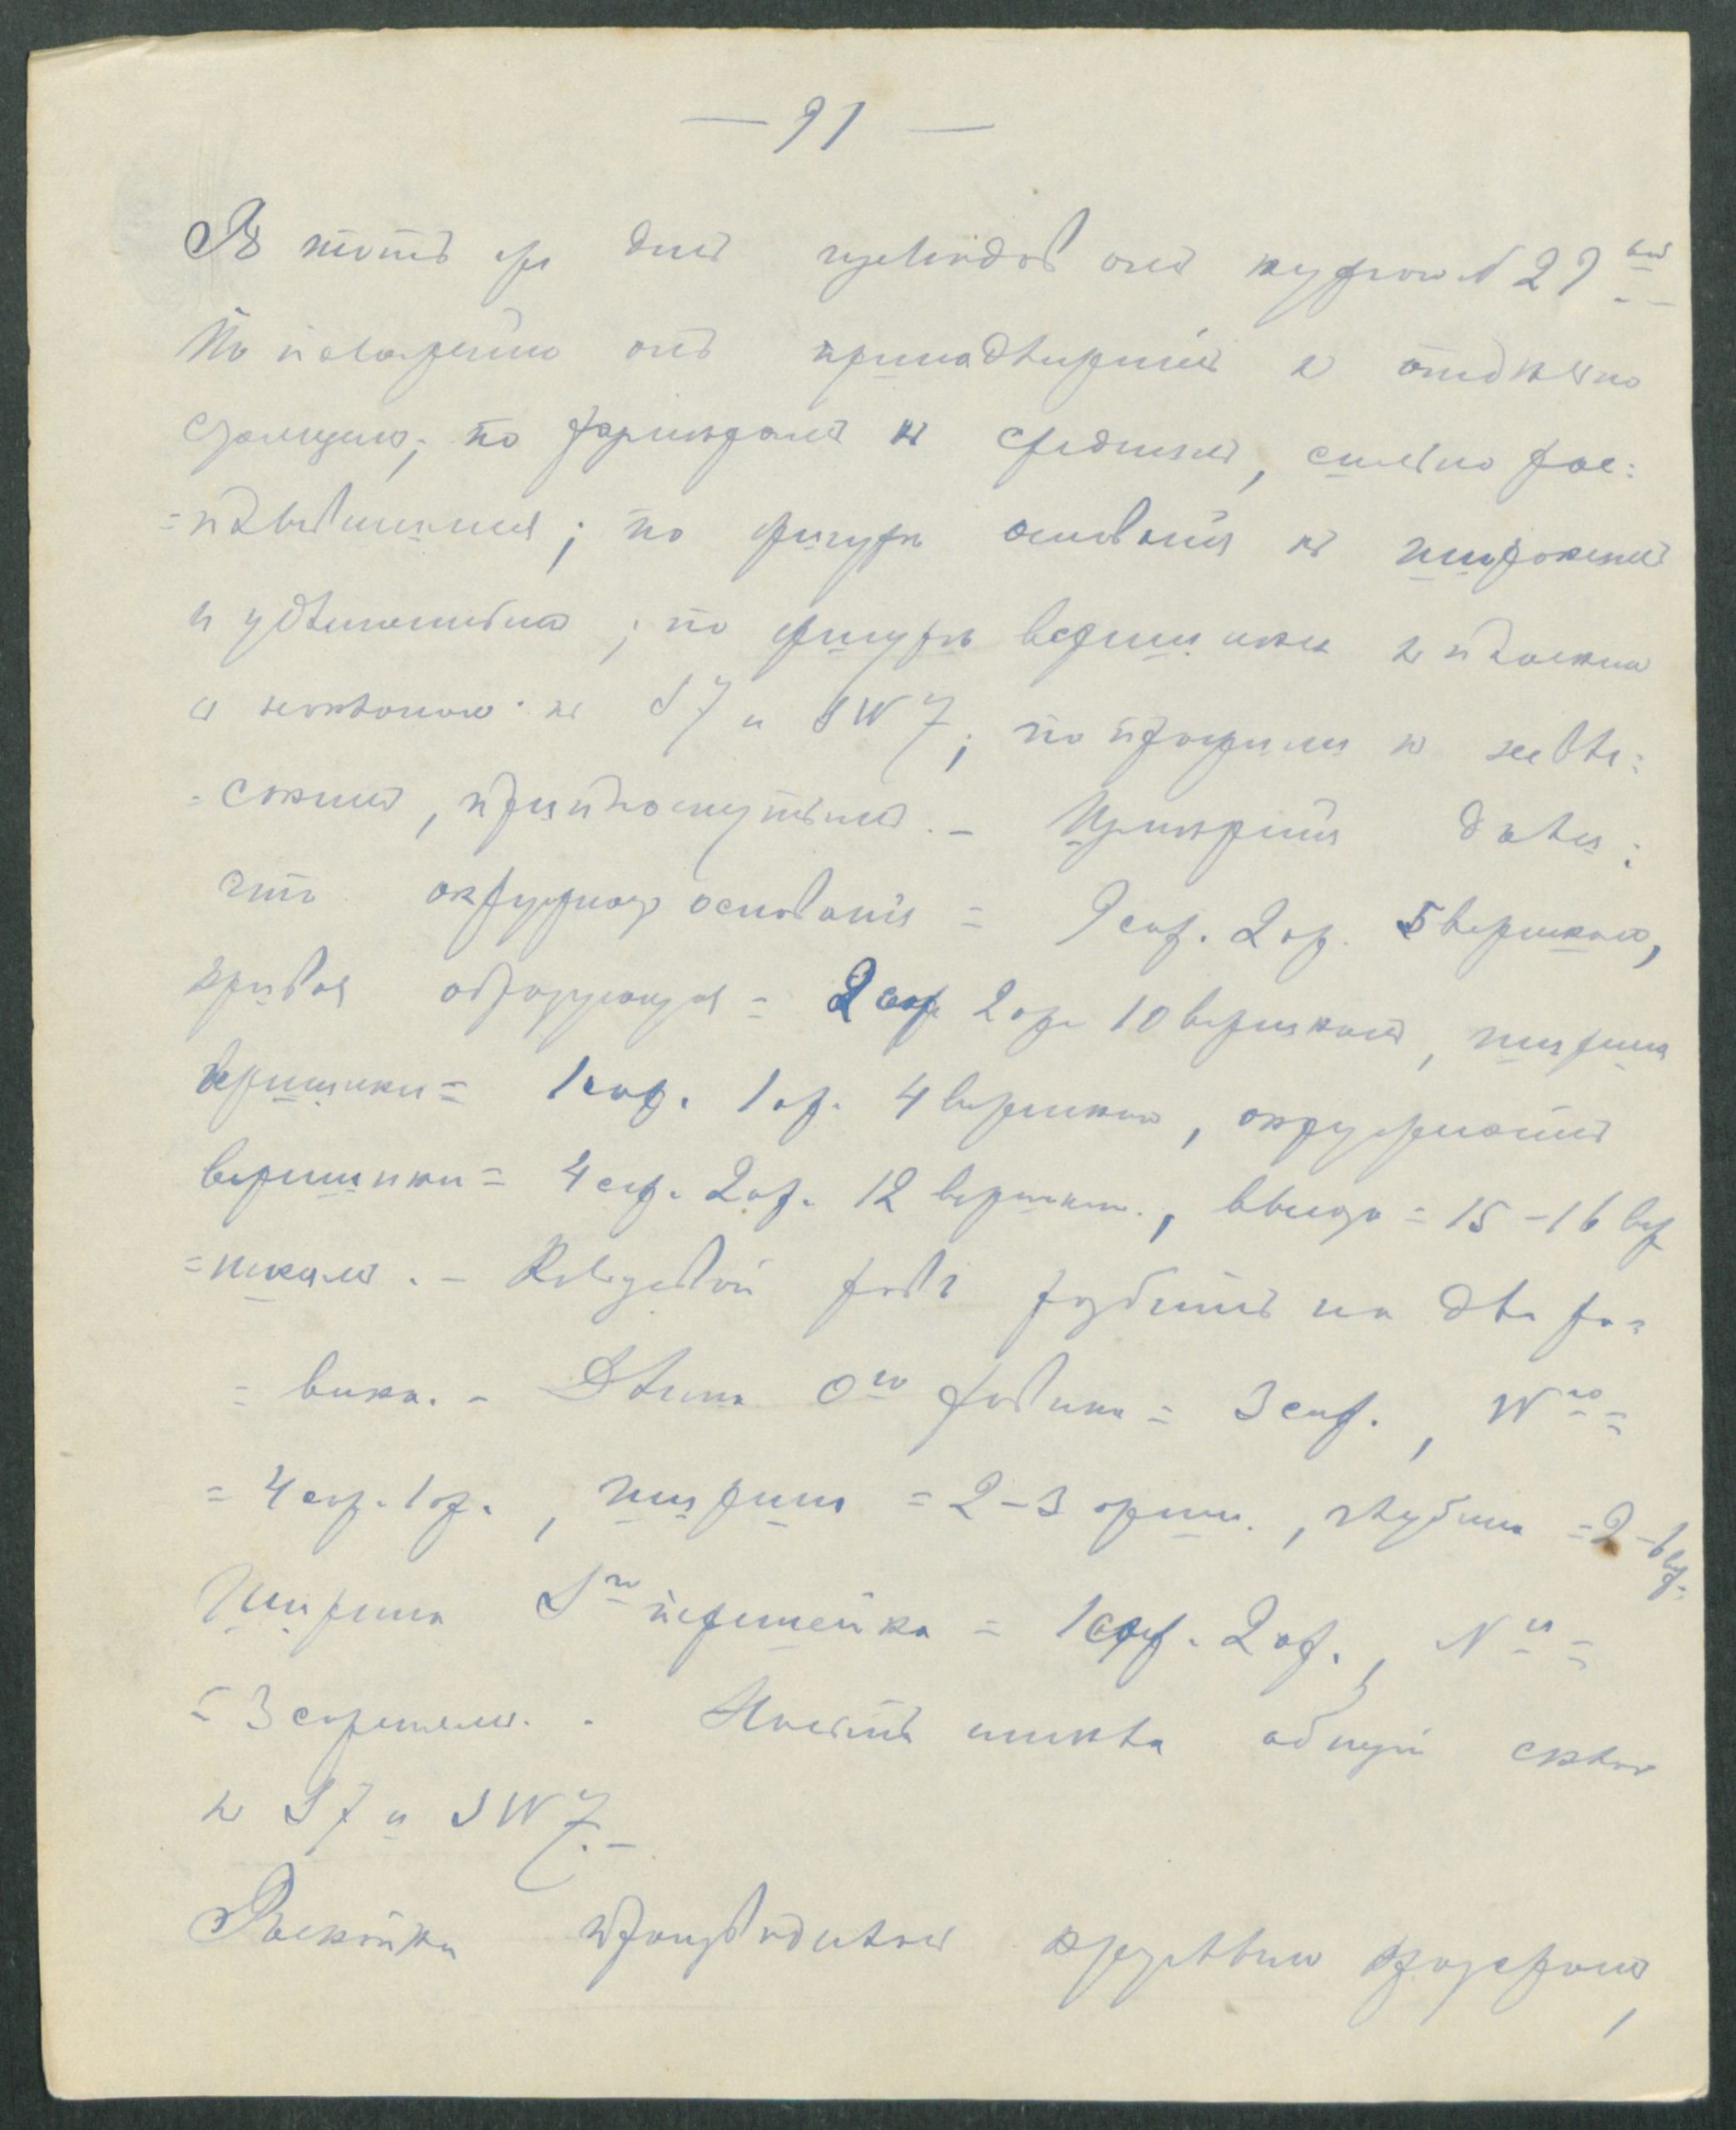 — 91 —
Въ тотъ же день изслѣдовалъ курганъ N 29ый
По положенію онъ принадлежитъ къ отдѣльно
стоящимъ; по размѣрамъ къ среднимъ, сильно рас=
=плывшимся; по фигурѣ основанія къ широкимъ
и удлиненнымъ; по фигурѣ вершинки къ плоскимъ
съ наклономъ къ S и SW; по профили къ невы=
=сокимъ, приплюснутымъ. — Измѣренія дали:
что окружность основанія = 9 саж. 2 ар. 5 вершкамъ,
кривая образующая = 2 саж 2 ар 10 вершкамъ, ширина
вершинки = 1 саж. 1 ар. 4 вершкамъ, окружность
вершинки = 4 саж. 2 ар. 12 вершкам., высота = 15 – 16 вер
=шкамъ. — Кольцевой ровъ разбитъ на два ро=
=вика. — Длина Oго ровика = 3 саж., Wго =
= 4 саж. 1 ар., ширина = 2 – 3 арш., глубина = 2 – 6 вер.
Ширина Sго перешейка = 1 саж. 2 ар., Nго =
= 3 саженям. — Насыпь имѣла общій склон
къ S и SW. —
Раскопка производилась круглымъ колодцемъ,